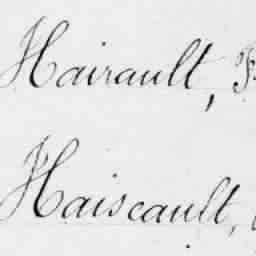 Hairault,
Haiscault,